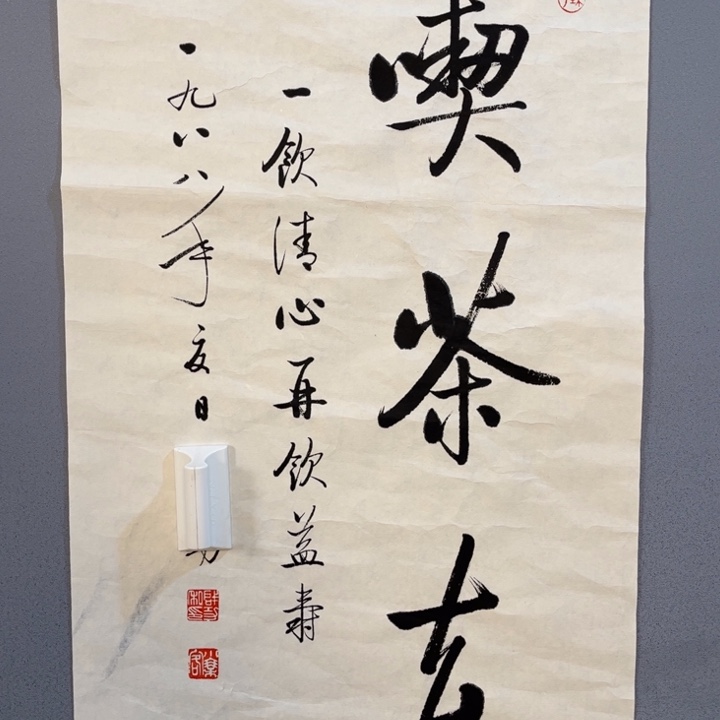 喫茶去
一飲清心再飲益壽
一九八八年夏日